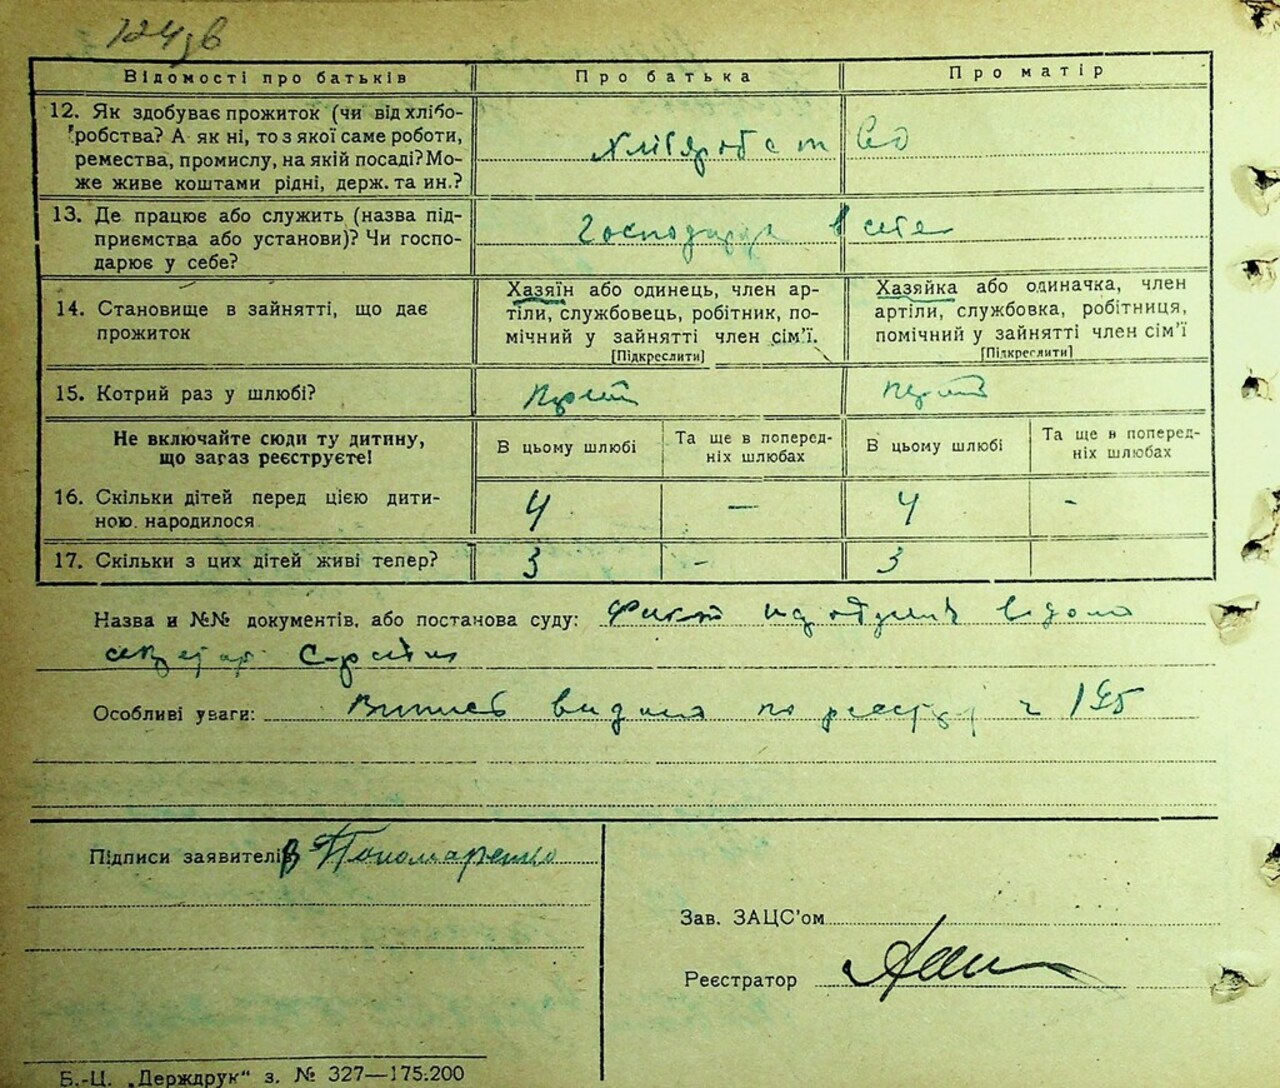 124зв
Відомості про батьків
Про батька
Про матір
12. Як здобуває прожиток (чи від хлібо-
робства? А як ні, то з якої саме роботи,
ремества, промислу, на якій посаді? Мо-
же живе коштами рідні, держ. та ин.?
13. Де працює або служить (назва під-
приємства або установи)? Чи госпо-
дарює у себе?
Господарує в себе
14. Становище в зайнятті, що дає
прожиток
Хазяїн або одинець, член ар-
тіли, службовець, робітник, по-
мічний у зайнятті член сім’ї.
[Підкреслити]
Хазяйка або одиначка, член
артіли, службовка, робітниця,
помічний у зайнятті член сім’ї
[Підкреслити]
15. Котрий раз у шлюбі?
Не включайте сюди ту дитину,
що загаз реєструєте!
В цьому шлюбі
Та ще в поперед-
ніх шлюбах
В цьому шлюбі
Та ще в поперед-
ніх шлюбах
16. Скільки дітей перед цією дити-
ною народилося
4 — 4 -
17. Скільки з цих дітей живі тепер?
3 - 3
Назва и №№ документів, або постанова суду:
Особливі уваги: Випись видана по реєстру
Підписи заявителів Пономаренко
Зав. ЗАЦС’ом
Реєстратор
Б.-Ц. „Держдрук“ з. № 327—175.200